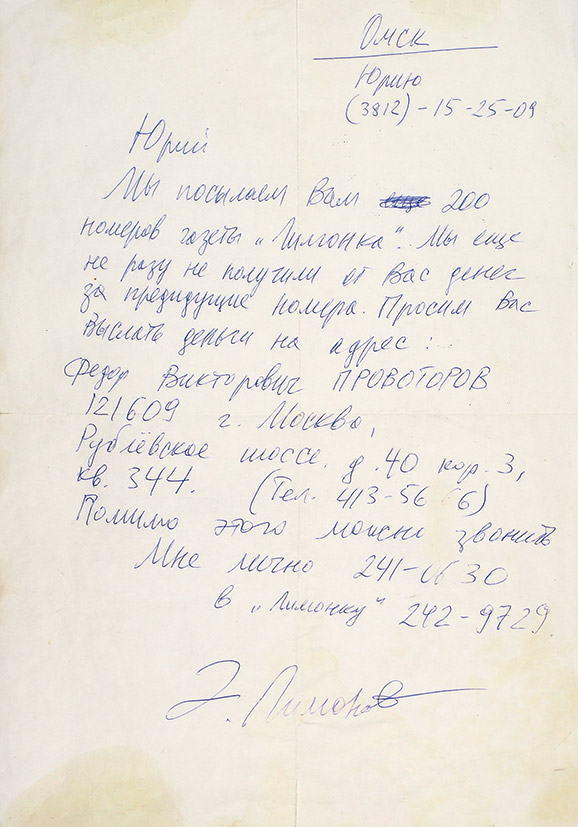 Омск
Юрию
(3812)-15-25-09
Юрий
Мы посылаем Вам еще 200
номеров газеты „Лимонка". Мы еще
не разу не получили от Вас денег
за предидущие номера. Просим Вас
выслать деньги на адрес:
Федор Викторович ПРОВОТОРОВ
121609 г. Москва,
Рублёвское шоссе, д. 40 кор. 3,
кв. 344. (Тел. 413-56 66)
Помимо этого можно звонить
Мне лично 241-0630
в „Лимонку" 242-9729
Э. Лимонов